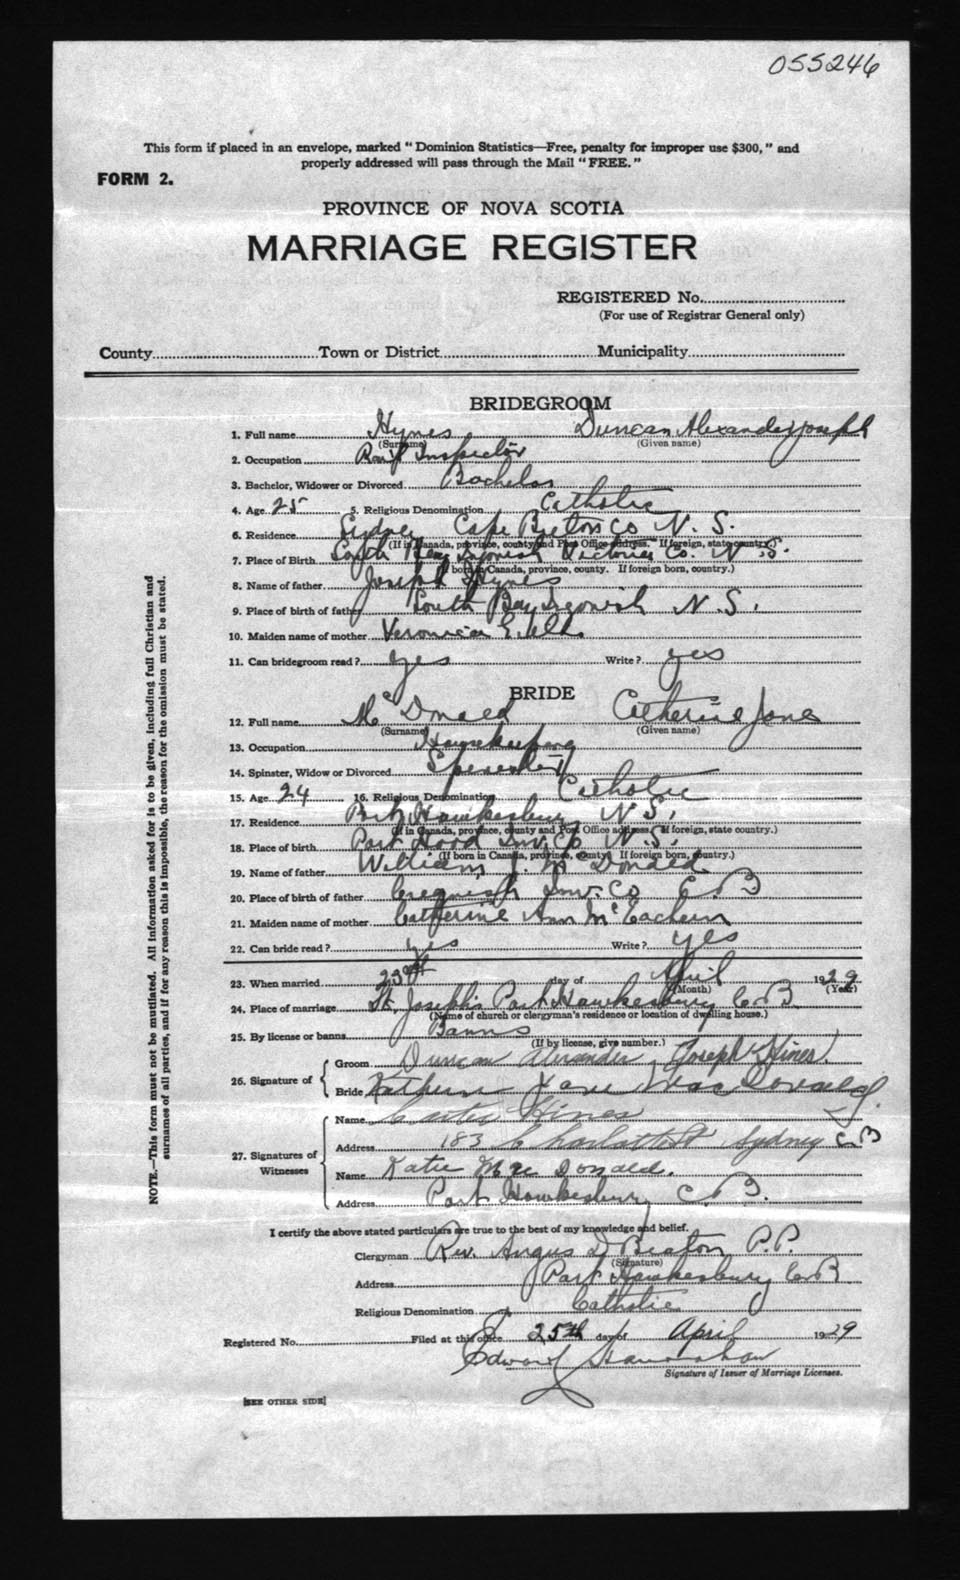 055246
This form if placed in an envelope, marked "Dominion Statistics—Free, penalty for improper use $300," and
properly addressed will pass through the Mail "FREE."
FORM 2.
PROVINCE OF NOVA SCOTIA
MARRIAGE REGISTER
REGISTERED No.
(For use of Registrar General only)
County Town or District Municipality
BRIDEGROOM
1. Full name Hynes Duncan Alexander Joseph
(Surname) (Given name)
2. Occupation Inspector
3. Bachelor, Widower or Divorced Bachelor
4. Age 25 5. Religious Denomination Catholic
6. Residence Sydney Cape Breton Co N. S.
(If in Canada, province, county and Post Office address. If foreign, state country.)
7. Place of Birth South Bay Ingonish Victoria Co. N. S.
(If born in Canada, province, county. If foreign born, country.)
8. Name of father Joseph Hynes
9. Place of birth of father South Bay Ingonish N. S.
10. Maiden name of mother Veronica
11. Can bridegroom read? yes Write? yes
BRIDE
12. Full name McDonald Catherine Jane
(Surname) (Given name)
13. Occupation Housekeeping
14. Spinster, Widow or Divorced Spinster
15. Age 24 16. Religious Denomination Catholic
17. Residence Port Hawkesbury N S.
(If in Canada, province, county and Post Office address. If foreign, state country.)
18. Place of birth Port Hood Inv. Co N. S.
(If born in Canada, province, county. If foreign born, country.)
19. Name of father William J. McDonald
20. Place of birth of father Creignish Inv. Co C. B
21. Maiden name of mother Catherine Ann McEachern
22. Can bride read? yes Write? yes
23. When married 23rd day of April 1929
(Month) (Year)
24. Place of marriage St. Joseph's Port Hawkesbury C. B.
(Name of church or clergyman's residence or location of dwelling house.)
25. By license or banns Banns
(If by license, give number.)
26. Signature of Groom Duncan Alexander Joseph Hines
Bride Katherine Jane MacDonald
27. Signatures of Witnesses Name Hines
Address 183 Charlotte St Sydney C B
Name Katie MacDonald.
Address Port Hawkesbury C. B.
I certify the above stated particulars are true to the best of my knowledge and belief.
Clergyman Rev. Angus D Beaton P. P.
(Signature)
Address Port Hawkesbury C. B
Religious Denomination Catholic
Registered No. Filed at this office 25th day of April 1929
Edward
Signature of Issuer of Marriage Licenses.
[SEE OTHER SIDE]
NOTE.—This form must not be mutilated. All information asked for is to be given, including full Christian and
surnames of all parties, and if for any reason this is impossible, the reason for the omission must be stated.